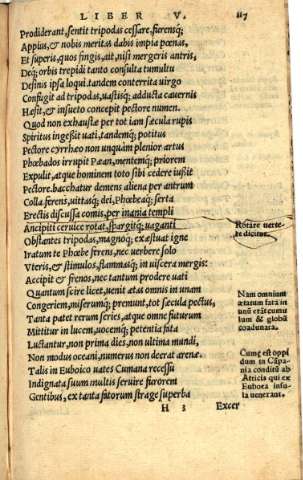 LIBER V. 117
Prodiderant, sentit tripodas cessare, furensq;
Appius, & nobis meritas dabis impia pœnas,
Et superis, quos fingis, ait, nisi mergeris antris,
Deq; orbis trepidi tanto consulta tumultu
Desinis ipsa loqui. tandem conterrita virgo
Confugit ad tripodas, uastisq; adducta cauernis
Hæsit, & insueto concepit pectore numen.
Quod non exhaustæ per tot iam sæcula rupis
Spiritus ingeßit uati, tandemq; potitus
Pectore cyrrhæo non unquam plenior artus
Phœbados irrupit Pæan, mentemq; priorem
Expulit, atque hominem toto sibi cedere iußit
Pectore. bacchatur demens aliena per antrum
Colla ferens, uittasq; dei, Phœbeaq; serta
Erectis discussa comis, per inania templi
Ancipiti ceruice rotat, spargitq; uaganti
Rotare uerte
re dicitur.
Obstantes tripodas, magnoq; exæstuat igne
Iratum te Phœbe ferens, nec uerbere solo
Vteris, & stimulos, flammasq; in uiscera mergis:
Accipit & frenos, nec tantum prodere uati
Quantum scire licet, uenit ætas omnis in unam
Congeriem, miserumq; premunt, tot sæcula pectus,
Nam omnium
ætatum fata in
unū erāt cumu
lum & globū
coadunata.
Tanta patet rerum series, atque omne futurum
Mittitur in lucem, uocemq; petentia fata
Luctantur, non prima dies, non ultima mundi,
Non modus oceani, numerus non deerat arenæ.
Talis in Euboico uates Cumana recessu
Cumę est oppi
dum in Cāpa-
nia conditū ab
Atticis qui ex
Eubœa insu-
la uenerant.
Indignata suum multis seruire furorem
Gentibus, ex tanta fatorum strage superba
H 3 Excer